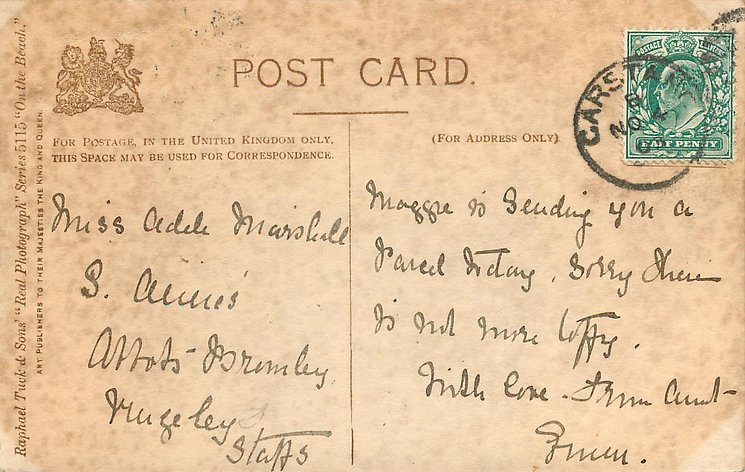 POST CARD.
FOR POSTAGE, IN THE UNITED KINGDOM ONLY,
THIS SPACE MAY BE USED FOR CORRESPONDENCE.
(FOR ADDRESS ONLY).
Raphael Tuck & Sons' "Real Photograph" Series 5115 "On the Beach."
ART PUBLISHERS TO THEIR MAJESTIES THE KING AND QUEEN.
POSTAGE
HALF PENNY
NO
Miss Adele Marshall
S. Annes
Abbots Bromley
Rugeley
Staffs
Maggie is sending you a
Parcel today. Sorry there
is not more toffy.
With love. From Aunt